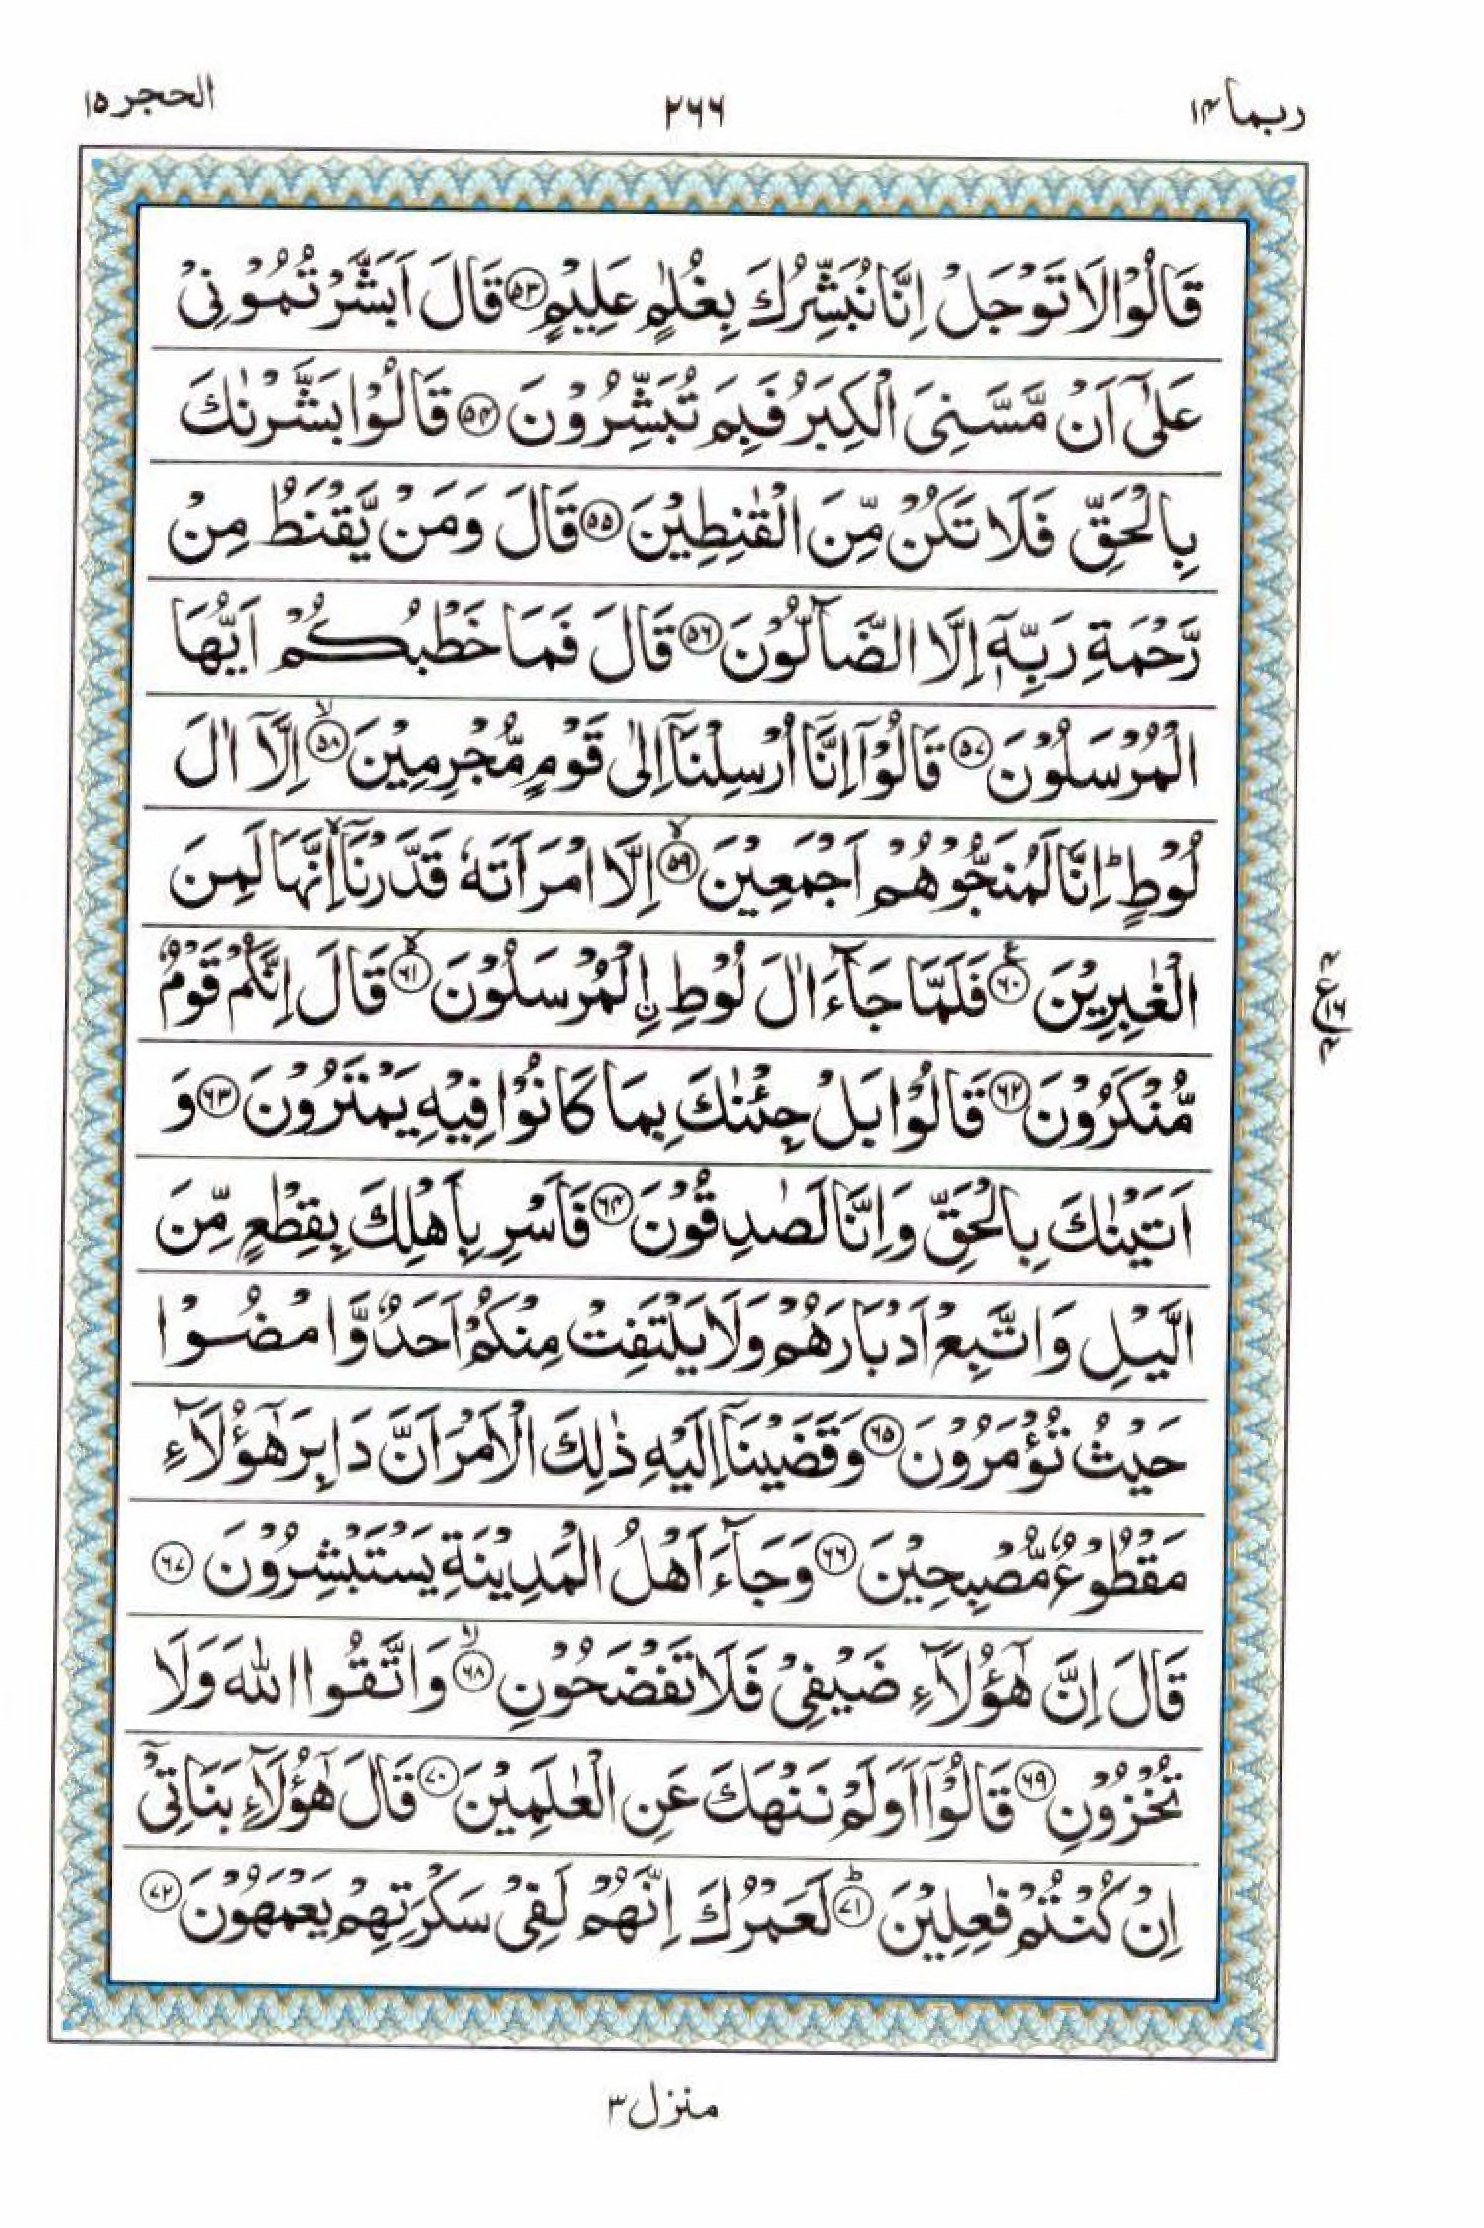 ربما ۱۴
۲۶۶
الحجر ۱۵
قَالُوْا لَا تَوْجَلْ اِنَّا نُبَشِّرُكَ بِغُلٰمٍ عَلِيْمٍ ﴿۵۳﴾ قَالَ اَبَشَّرْتُمُوْنِيْ
عَلٰۤى اَنْ مَّسَّنِيَ الْكِبَرُ فَبِمَ تُبَشِّرُوْنَ ﴿۵۴﴾ قَالُوْا بَشَّرْنٰكَ
بِالْحَقِّ فَلَا تَكُنْ مِّنَ الْقٰنِطِيْنَ ﴿۵۵﴾ قَالَ وَمَنْ يَّقْنَطُ مِنْ
رَّحْمَةِ رَبِّهٖۤ اِلَّا الضَّآلُّوْنَ ﴿۵۶﴾ قَالَ فَمَا خَطْبُكُمْ اَيُّهَا
الْمُرْسَلُوْنَ ﴿۵۷﴾ قَالُوْۤا اِنَّاۤ اُرْسِلْنَاۤ اِلٰى قَوْمٍ مُّجْرِمِيْنَ ﴿۵۸﴾ۙ اِلَّاۤ اٰلَ
لُوْطٍ ؕ اِنَّا لَمُنَجُّوْهُمْ اَجْمَعِيْنَ ﴿۵۹﴾ۙ اِلَّا امْرَاَتَهٗ قَدَّرْنَاۤ ۙ اِنَّهَا لَمِنَ
الْغٰبِرِيْنَ ﴿۶۰﴾ فَلَمَّا جَآءَ اٰلَ لُوْطِ نِ الْمُرْسَلُوْنَ ﴿۶۱﴾ۙ قَالَ اِنَّكُمْ قَوْمٌ
مُّنْكَرُوْنَ ﴿۶۲﴾ قَالُوْا بَلْ جِئْنٰكَ بِمَا كَانُوْا فِيْهِ يَمْتَرُوْنَ ﴿۶۳﴾ وَ
اَتَيْنٰكَ بِالْحَقِّ وَاِنَّا لَصٰدِقُوْنَ ﴿۶۴﴾ فَاَسْرِ بِاَهْلِكَ بِقِطْعٍ مِّنَ
الَّيْلِ وَاتَّبِعْ اَدْبَارَهُمْ وَلَا يَلْتَفِتْ مِنْكُمْ اَحَدٌ وَّامْضُوْا
حَيْثُ تُؤْمَرُوْنَ ﴿۶۵﴾ وَقَضَيْنَاۤ اِلَيْهِ ذٰلِكَ الْاَمْرَ اَنَّ دَابِرَ هٰۤؤُلَآءِ
مَقْطُوْعٌ مُّصْبِحِيْنَ ﴿۶۶﴾ وَجَآءَ اَهْلُ الْمَدِيْنَةِ يَسْتَبْشِرُوْنَ ﴿۶۷﴾
قَالَ اِنَّ هٰۤؤُلَآءِ ضَيْفِيْ فَلَا تَفْضَحُوْنِ ﴿۶۸﴾ۙ وَاتَّقُوا اللّٰهَ وَلَا
تُخْزُوْنِ ﴿۶۹﴾ قَالُوْۤا اَوَلَمْ نَنْهَكَ عَنِ الْعٰلَمِيْنَ ﴿۷۰﴾ قَالَ هٰۤؤُلَآءِ بَنَاتِيْۤ
اِنْ كُنْتُمْ فٰعِلِيْنَ ﴿۷۱﴾ؕ لَعَمْرُكَ اِنَّهُمْ لَفِيْ سَكْرَتِهِمْ يَعْمَهُوْنَ ﴿۷۲﴾
منزل ۳